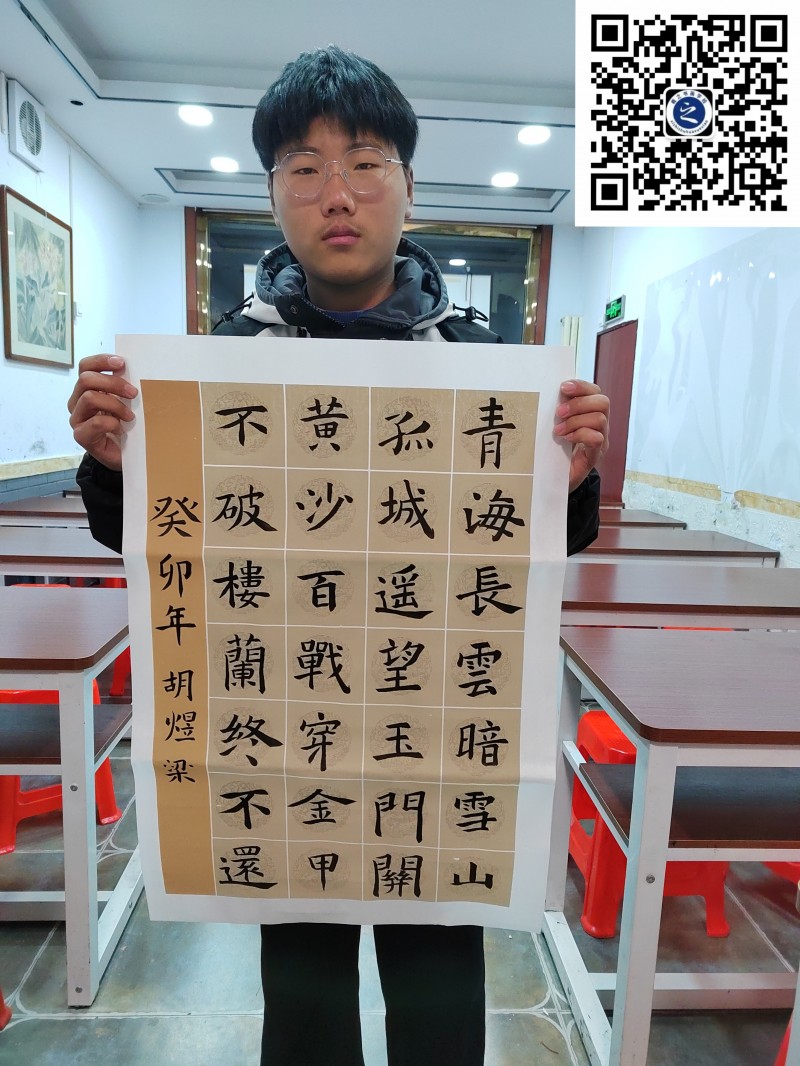 青海長雲暗雪山
孤城遥望玉門關
黄沙百戰穿金甲
不破樓蘭終不還
癸卯年 胡煜梁